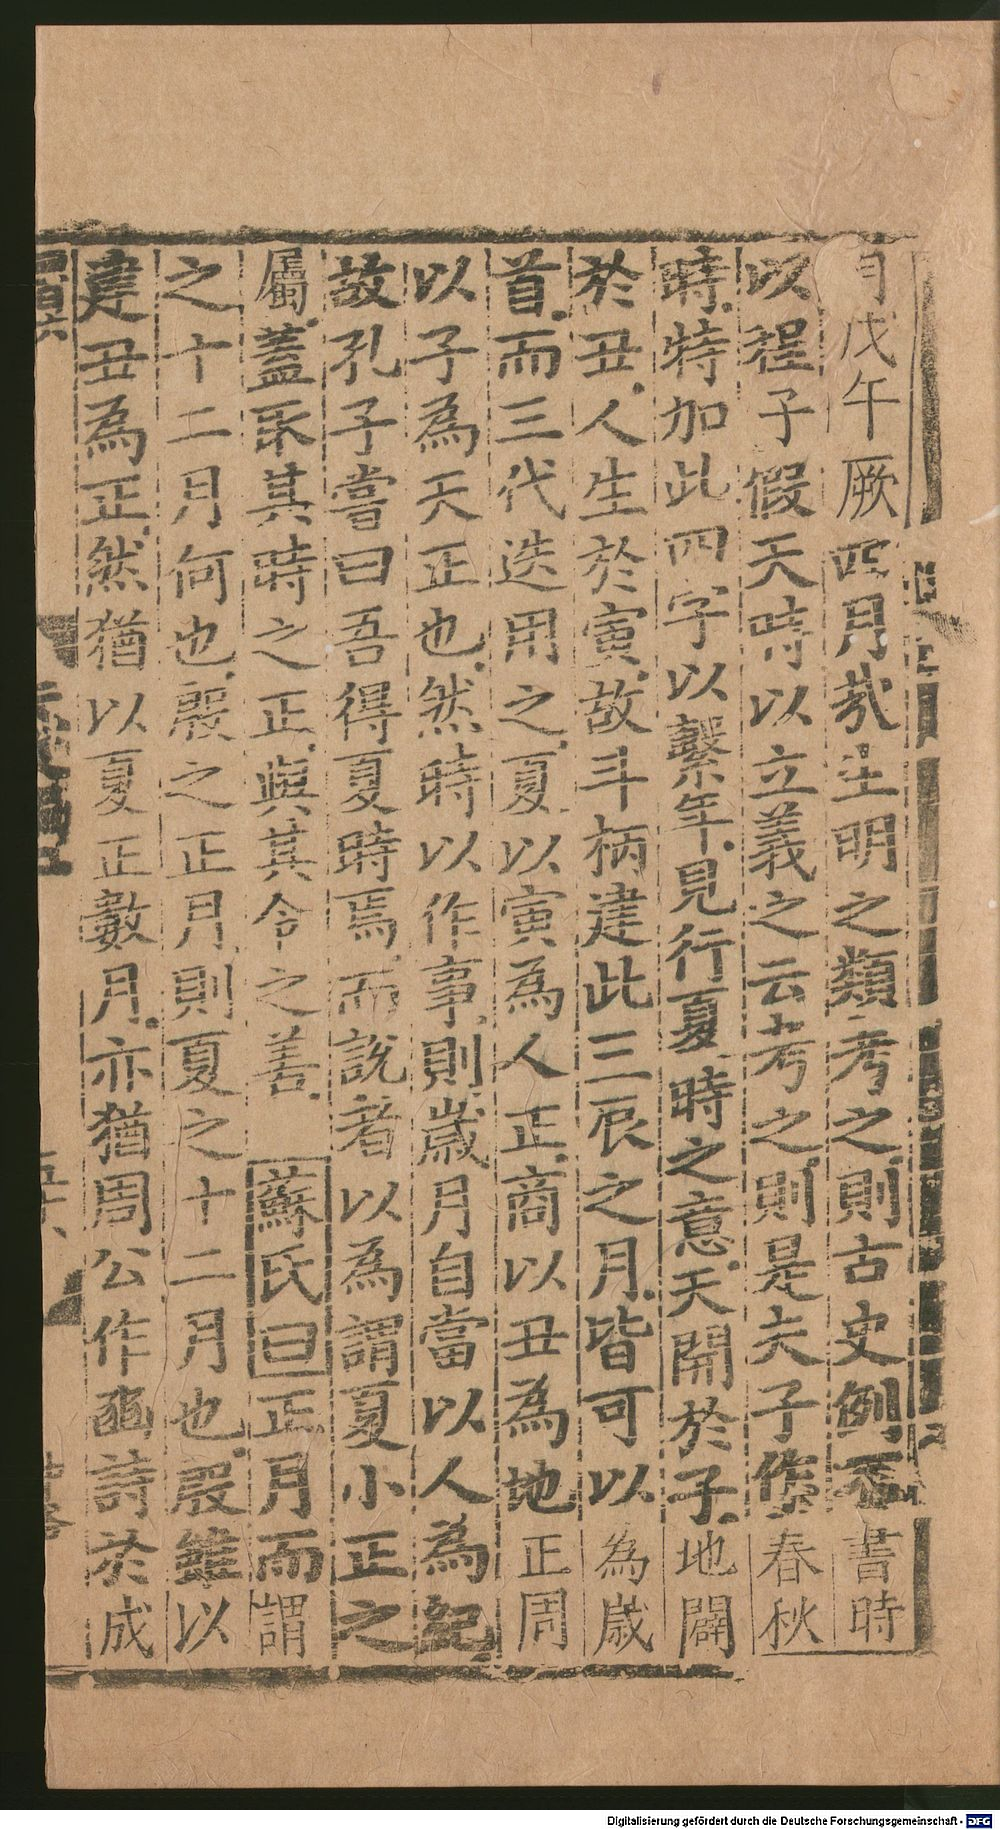 月戊午厥四月哉生明之類考之則古史例不書時
以程子假天時以立義之云考之則是夫子作春秋
時特加此四字以繫年見行夏時之意天開於子地闢
於丑人生於寅故斗柄建此三辰之月皆可以為歲
首而三代迭用之夏以寅為人正商以丑為地正周
以子為天正也然時以作事則歲月自當以人為紀
故孔子嘗曰吾得夏時焉而說者以為謂夏小正之
屬蓋取其時之正與其令之善 蘇氏曰正月而謂
之十二月何也殷之正月則夏之十二月也殷雖以
建丑為正然猶以夏正數月亦猶周公作豳詩於成
Digitalisierung gefördert durch die Deutsche Forschungsgemeinschaft - DFG